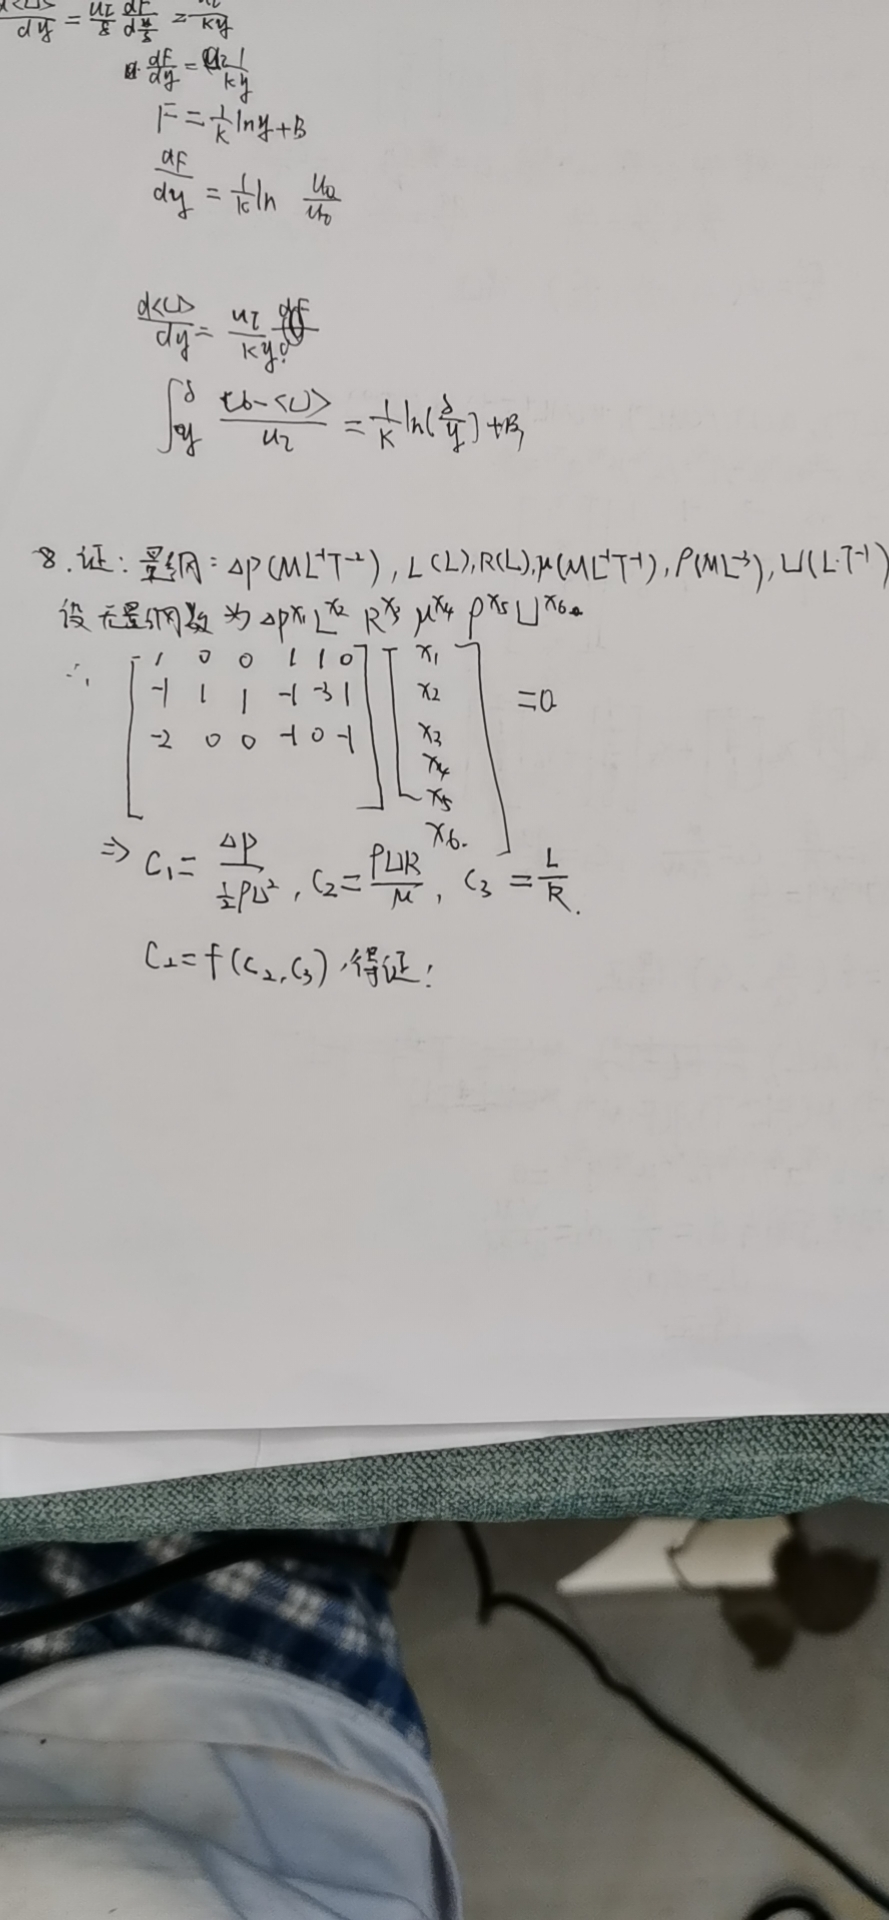 dy = uτ/δ dF/d y/δ = κy
dF/dy = 1/κy
F = 1/κ lny + B
dF/dy = 1/κ ln u0/u0
d<U>/dy = uτ/κy
∫ δ y U0-<U>/uτ = 1/κ ln(δ/y) + B1
8. 证: 量纲: Δp(ML⁻¹T⁻²), L(L), R(L), μ(ML⁻¹T⁻¹), ρ(ML⁻³), U(L·T⁻¹)
设无量纲数为 Δp^x1 L^x2 R^x3 μ^x4 ρ^x5 U^x6.
∴ [1 0 0 1 1 0] [x1
-1 1 1 -1 -3 1 x2 =0
-2 0 0 -1 0 -1 x3
x4
x5
x6.]
⇒ C1 = Δp/½ρU², C2 = ρUR/μ, C3 = L/R.
C1 = f(C2, C3), 得证!